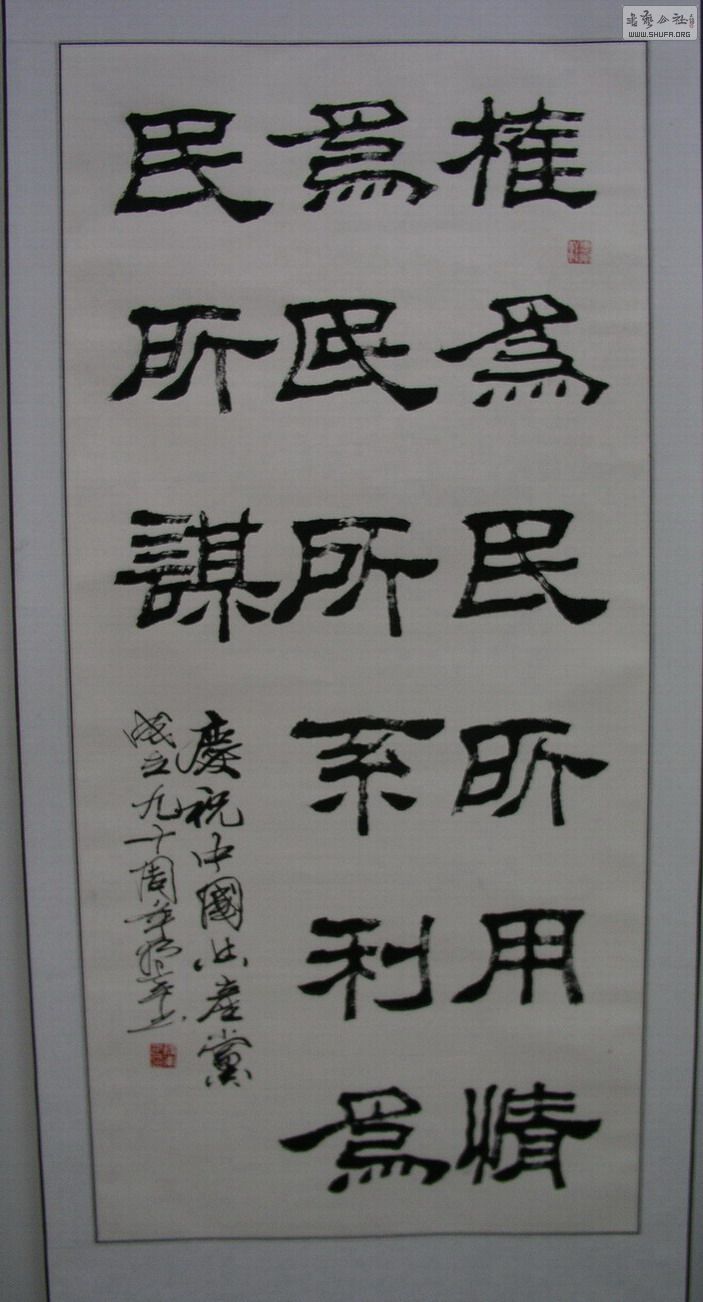 權為民所用情
為民所系利為
民所謀
慶祝中國共產黨
成立九十周年
書藝公社
WWW.SHUFA.ORG